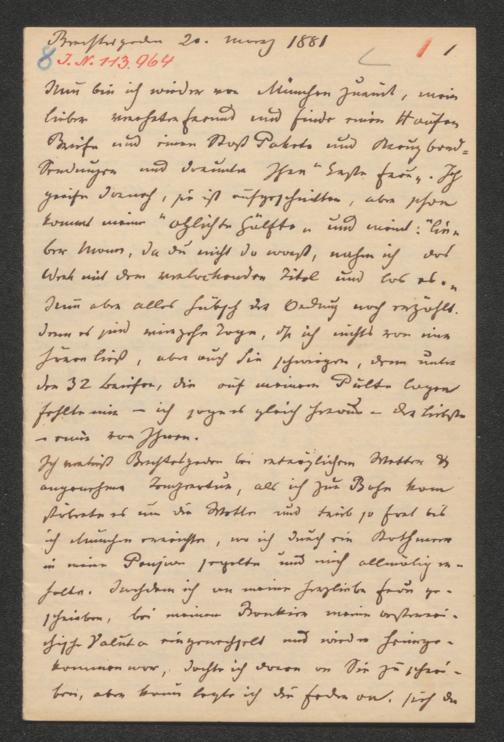 Berchtesgaden 20. März 1881
8 J.N. 113.964 1
Nun bin ich wieder von München zurück, mein
lieber verehrter Freund und finde einen Haufen
Briefe und einen Stoß Pakete und Kreuzband-
Sendungen und darunter Ihre "keusche Frau". Ich
greife darnach, sie ist aufgeschnitten, aber schon
kommt meine "ehliche Hälfte" und meint: "lie-
ber Mann, da du nicht da warst, nahm ich das
Werk mit dem verlockenden Titel und las es."
Nun aber alles hübsch der Ordnung nach erzählt.
Denn es sind vierzehn Tage, daß ich nichts von mir
hören ließ, aber auch Sie schweigen, denn unter
den 32 Briefen, die auf meinem Pulte lagen
fehlte mir – ich sage es gleich heraus – der liebste
– einer von Ihnen.
Ich verließ Berchtesgaden bei erträglichem Wetter &
angenehmer Temperatur, als ich zur Bahn kam
stürmte es um die Wette und trieb so fort bis
ich München erreichte, wo ich durch ein Kothmeer
in meine Pension segelte und mich allmälig er-
holte. Nachdem ich an meine herzliebe Frau ge-
schrieben, bei meinem Bankier meine österrei-
chische Valuta eingewechselt und wieder heimge-
kommen war, dachte ich daran an Sie zu schrei-
ben, aber kaum legte ich die Feder an, sich die